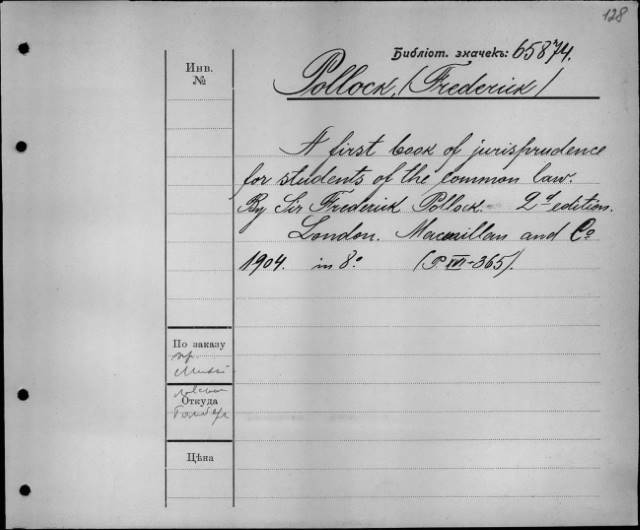 128
Библіот. значекъ: 65874.
Инв.
№
Pollock, (Frederick)
A first book of jurisprudence
for students of the common law.
By Sir Frederick Pollock. 2d edition.
London. Macmillan and Co
1904. in 8o (P XVI-365).
По заказу
пр.
Откуда
Цѣна